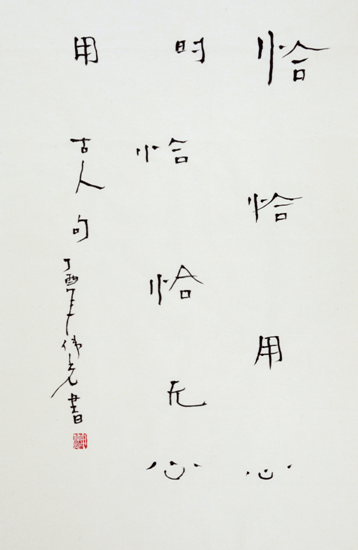 恰恰用心
时恰恰无心
用
古人句
丁酉年伟光书